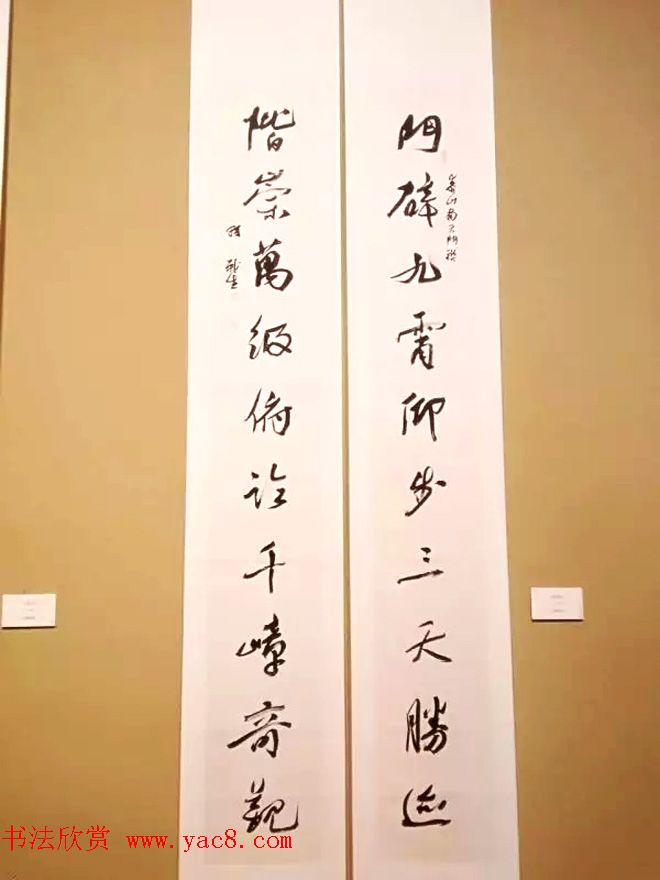 門辟九霄仰步三天勝迹
泰山南天門聯
階崇萬級俯临千嶂奇觀
书法欣赏 www.yac8.com